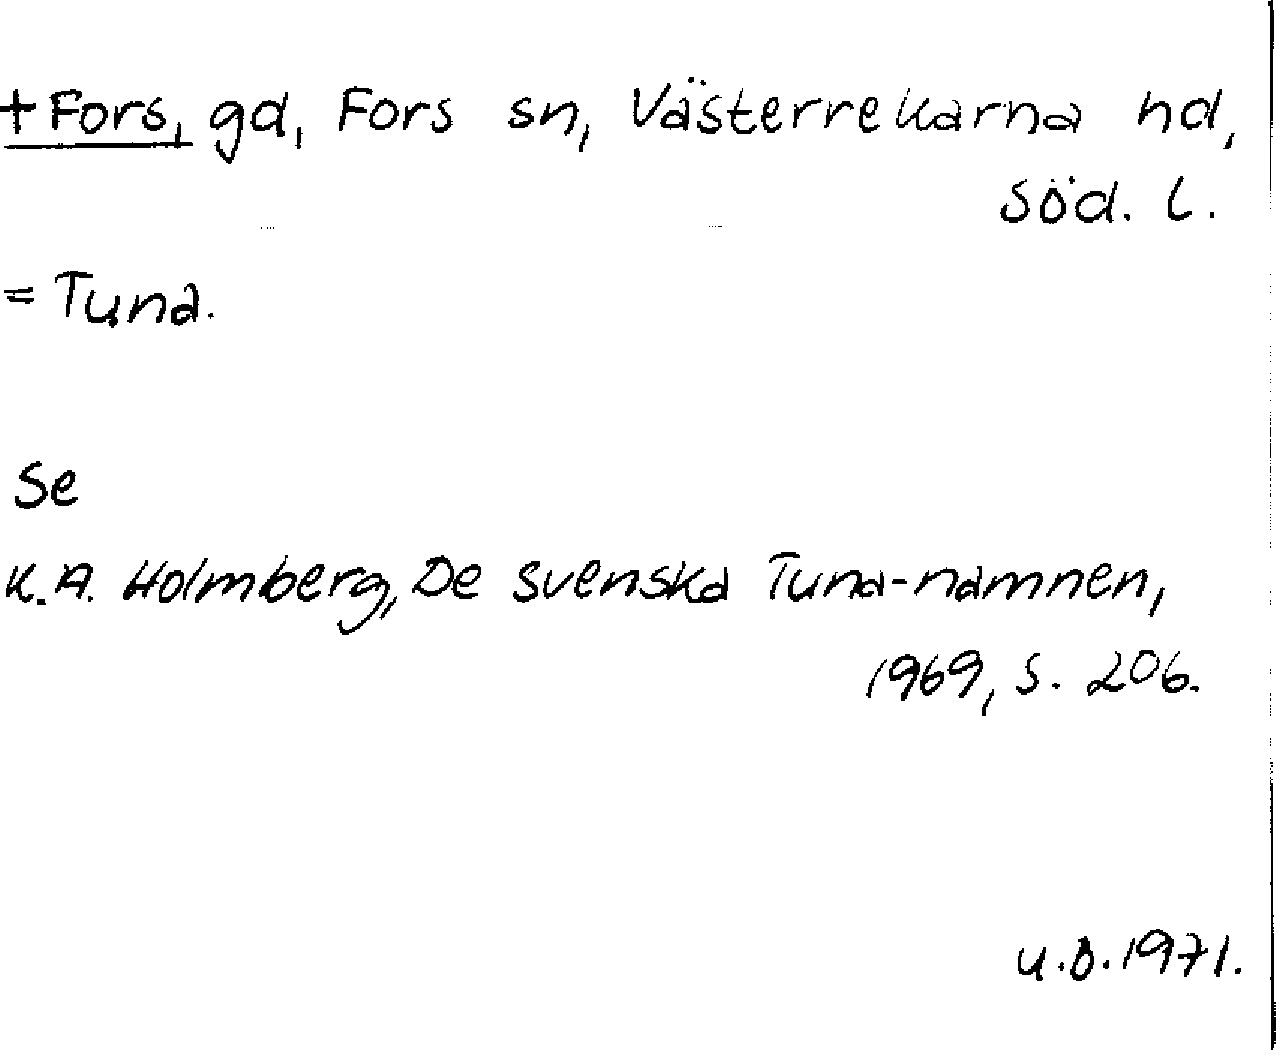 +Fors, gd, Fors sn, Västerrekarna hd,
Söd. l.
= Tuna.
Se
K.A. Holmberg, De svenska Tuna-namnen,
1969, s. 206.
u.å.1971.